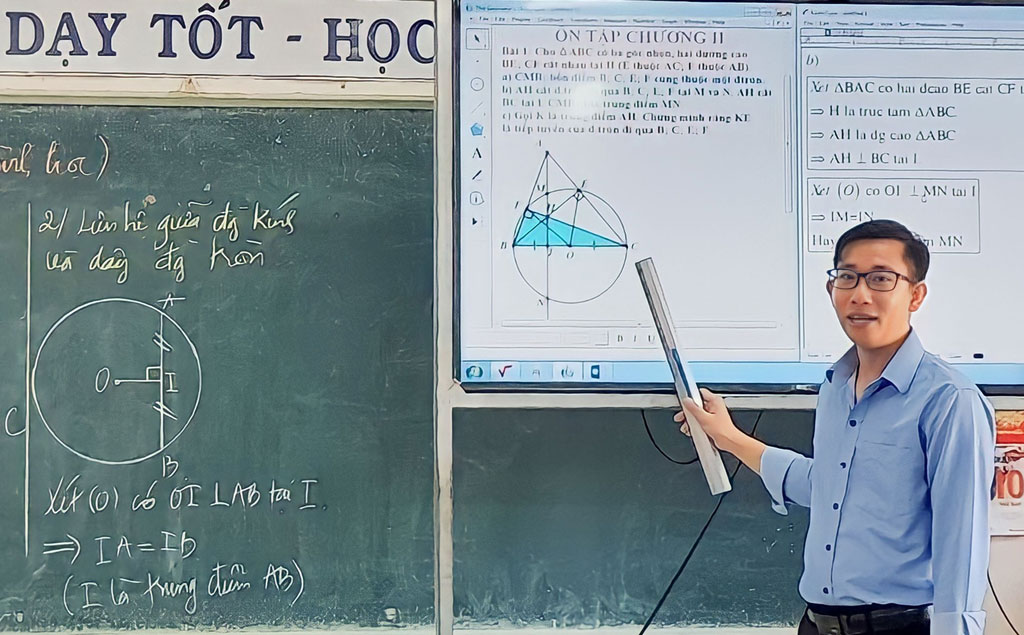 DẠY TỐT - HỌC
2/ Liên hệ giữa đg kính
và dây đg tròn
A
O
I
B
C
Xét (O) có OI ⊥ AB tại I
=> IA = IB
(I là trung điểm AB)
ÔN TẬP CHƯƠNG II
Bài 1. Cho ΔABC có ba góc nhọn, hai đường cao
BE, CF cắt nhau tại H (E thuộc AC, F thuộc AB)
a) CMR: bốn điểm B, C, E, F cùng thuộc một đtròn.
b) AH cắt đ.tr qua B, C, E, F tại M và N. AH cắt
BC tại I. CMR: trung điểm MN
c) Gọi K là trung điểm AH. Chứng minh rằng KE
là tiếp tuyến của đ tròn đi qua B; C; E; F
A
M
E
F
H
B
I
O
C
N
b)
Xét ΔBAC có hai đcao BE cắt CF
⇒ H là trực tâm ΔABC
⇒ AH là đg cao ΔABC
⇒ AH ⊥ BC tại I
Xét (O) có OI ⊥ MN tại I
⇒ IM=IN
Hay MN